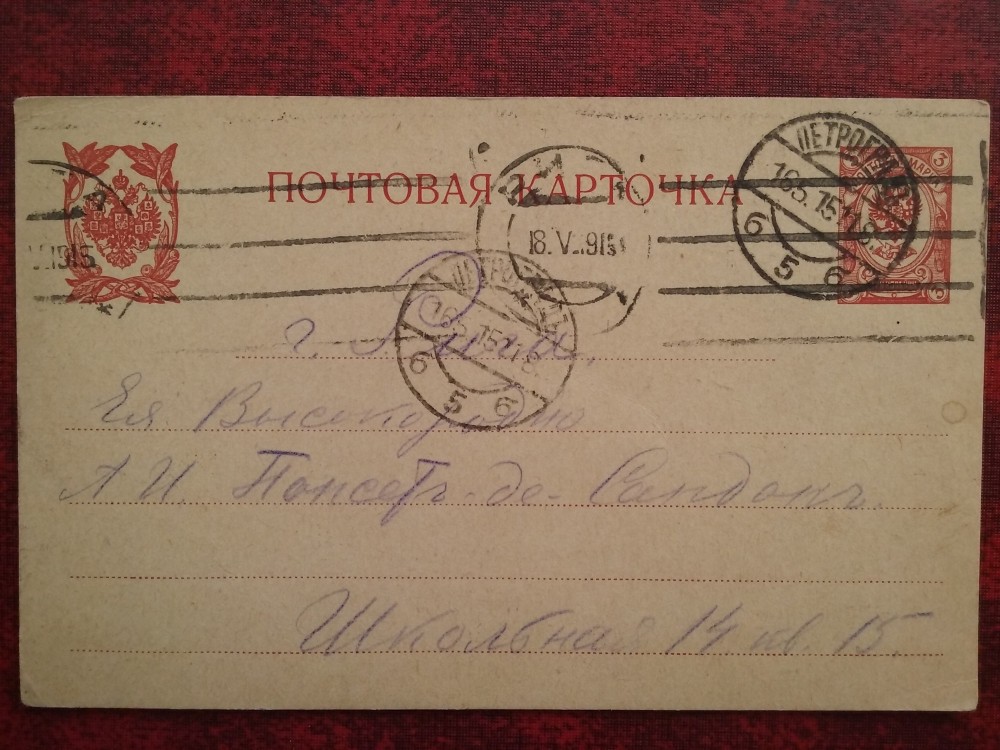 ПОЧТОВАЯ КАРТОЧКА
3
ПЕТРОГРАДЪ
16.5.15 11 8.
6 5 6
18.V.1915
.1915
ПЕТРОГРАДЪ
16.5.15 11 8.
6 5 6
г. Рига,
Ея Высокородию
А И. Понсетъ-де-Сандонъ.
Школьная 14 кв. 15.